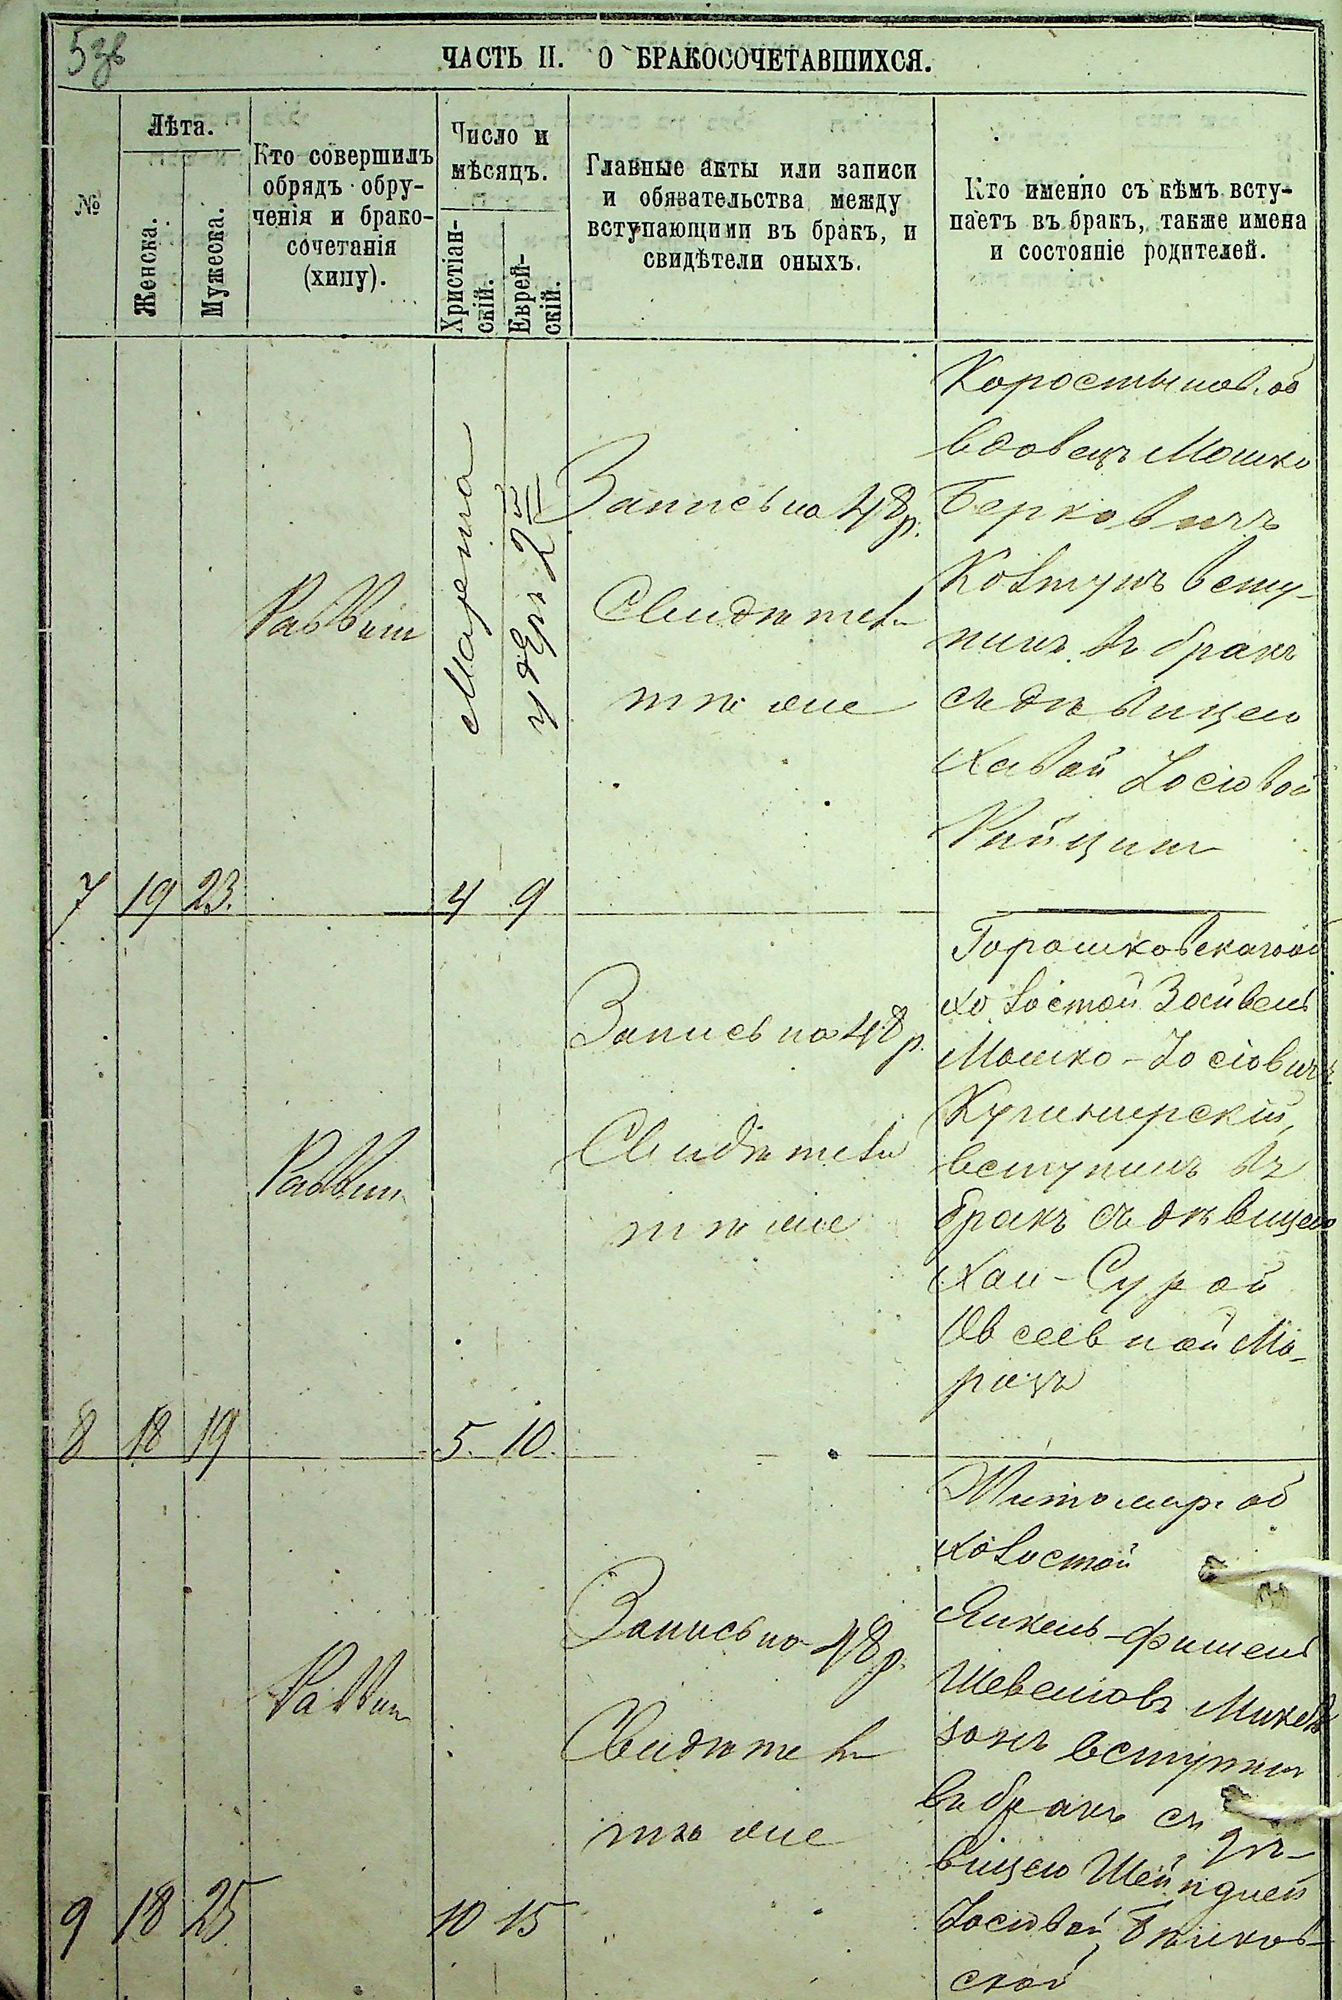 53об
ЧАСТЬ II. О БРАКОСОЧЕТАВШИХСЯ.
№
Лѣта.
Женска.
Мужеска.
Кто совершилъ
обрядъ обру-
ченія и брако-
сочетанія
(хипу).
Число и
мѣсяцъ.
Христіан-
скій.
Еврей-
скій.
Главные акты или записи
и обязательства между
вступающими въ бракъ, и
свидѣтели оныхъ.
Кто именно съ кѣмъ всту-
паетъ въ бракъ, также имена
и состояніе родителей.
7
19
23.
Раввин
Марта
4
9
Запись на 48 р.
Свидѣтели
тѣ же
вдовецъ Мошко
Берковичъ
Ковтунъ всту-
пилъ въ бракъ
съ дѣвицею
Хавой Іосіовой
8
18
19
Раввин
5.
10.
Запись на 48 р.
Свидѣтели
тѣ же
холостой Зейвель
Мошко-Іосіовичъ
вступилъ въ
бракъ съ дѣвицею
Хаи-Сурой
Овсеевной Мо-
9
18
25
Раввин
10
15
Запись на 48 р.
Свидѣтели
тѣ же
Житомир. об
холостой
Янкель-Фишель
зонъ вступил
въ бракъ съ дѣ-
вицею Шейндлей
ской